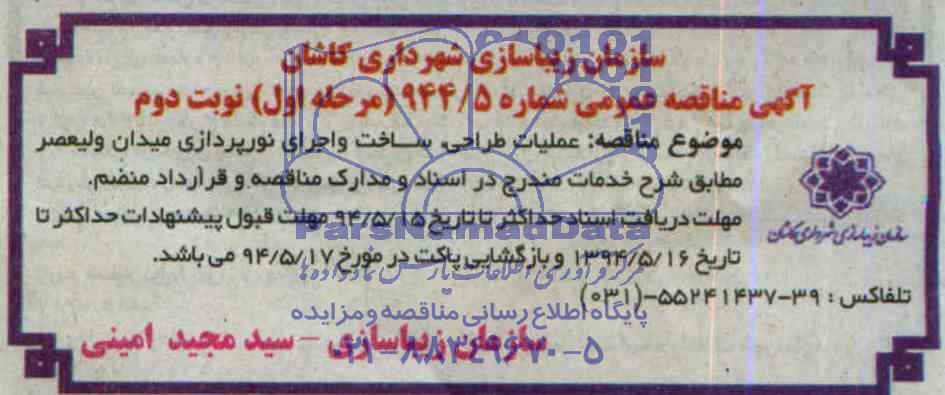 سازمان زیباسازی شهرداری کاشان
آگهی مناقصه عمومی شماره ۹۴۴/۵ (مرحله اول) نوبت دوم
موضوع مناقصه: عملیات طراحی، ساخت واجرای نورپردازی میدان ولیعصر
مطابق شرح خدمات مندرج در اسناد و مدارک مناقصه و قرارداد منضم.
مهلت دریافت اسناد حداکثر تا تاریخ ۹۴/۵/۱۵ مهلت قبول پیشنهادات حداکثر تا
تاریخ ۱۳۹۴/۵/۱۶ و بازگشایی پاکت در مورخ ۹۴/۵/۱۷ می باشد.
تلفاکس : ۳۹-۵۵۲۴۱۴۳۷-(۰۳۱)
سازمان زیباسازی - سید مجید امینی
سازمان زیباسازی شهرداری کاشان
ParsNamadData
مرکز فرآوری اطلاعات پارس نماد داده ها
پایگاه اطلاع رسانی مناقصه و مزایده
۰۲۱-۸۸۳۴۹۶۷۰-۵